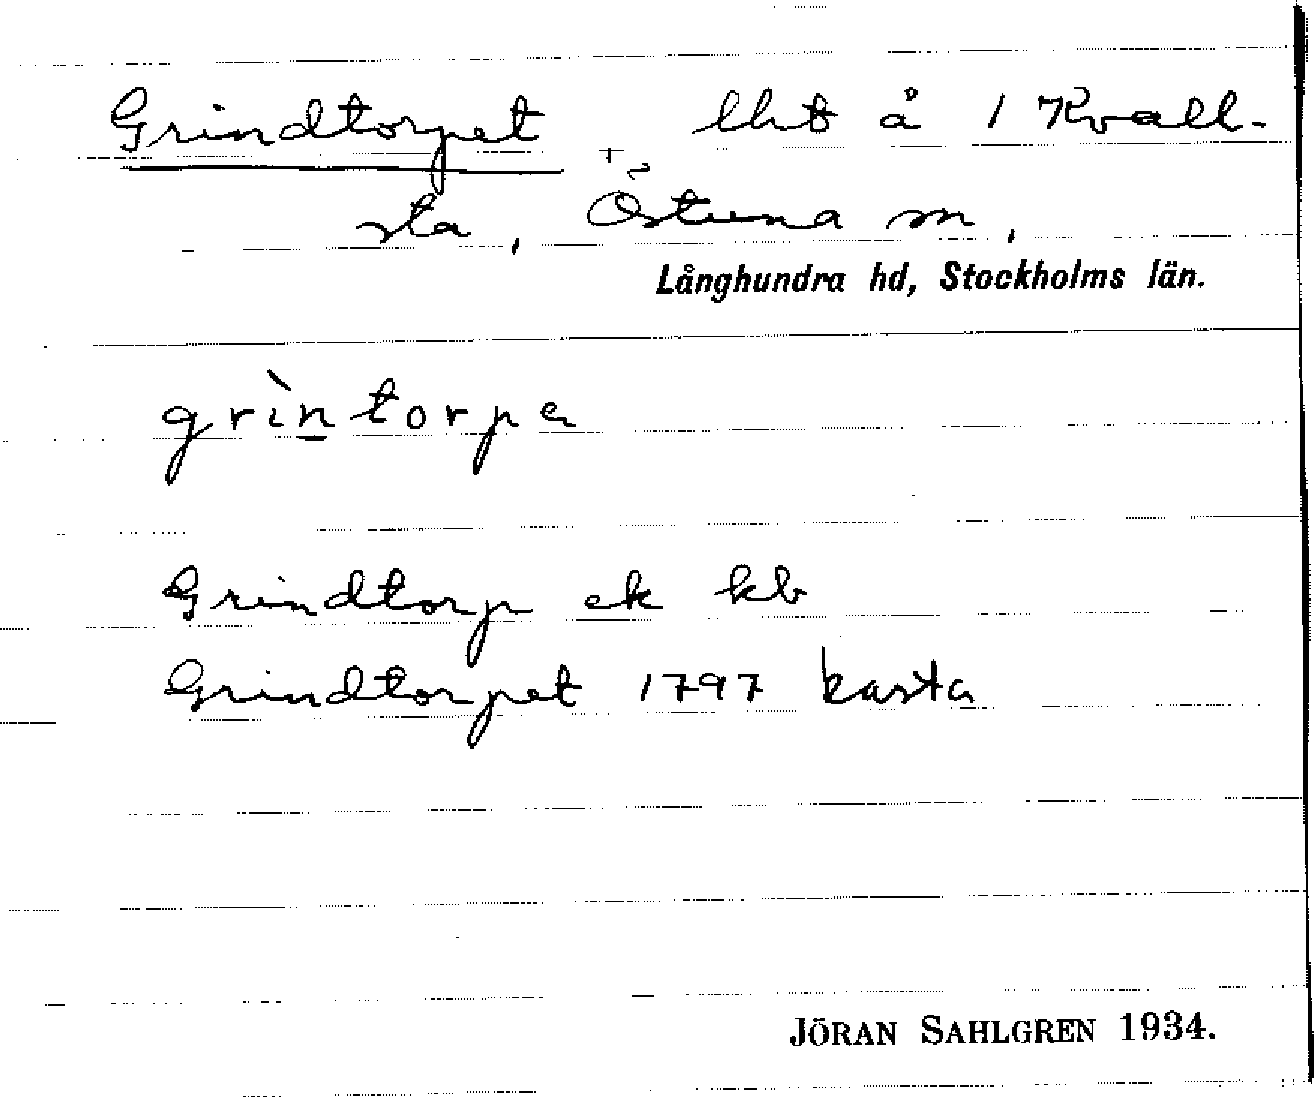 Grindtorpet lht å 1 Kvall-
sta, Östuna sn,
Långhundra hd, Stockholms län.
grìn̲torpa
Grindtorp ek kb
Grindtorpet 1797 karta
JÖRAN SAHLGREN 1934.